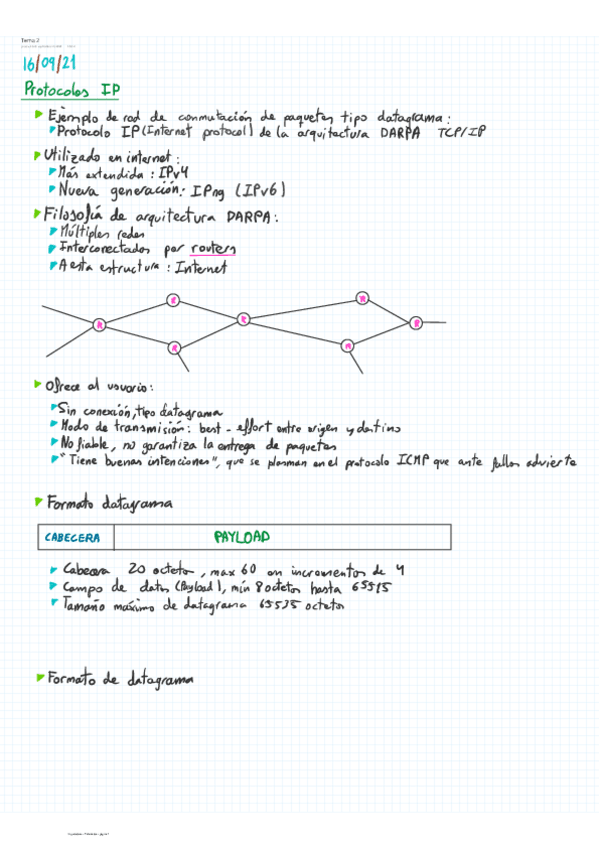 Tema 2
16/09/21
Protocolos IP
Ejemplo de red de conmutación de paquetes tipo datagrama:
Protocolo IP (Internet protocol) de la arquitectura DARPA TCP/IP
Utilizado en internet:
Más extendida: IPv4
Nueva generación: IPng (IPv6)
Filosofía de arquitectura DARPA:
Múltiples redes
Interconectados por routers
A esta estructura: Internet
R
R
R
R
R
R
R
Ofrece al usuario:
Sin conexión, tipo datagrama
Modo de transmisión: best-effort entre origen y destino
No fiable, no garantiza la entrega de paquetes
"Tiene buenas intenciones", que se plasman en el protocolo ICMP que ante fallos advierte
Formato datagrama
CABECERA PAYLOAD
Cabecera 20 octetos, max 60 en incrementos de 4
Campo de datos (Payload), mín 8 octetos hasta 65515
Tamaño máximo de datagrama 65535 octetos
Formato de datagrama